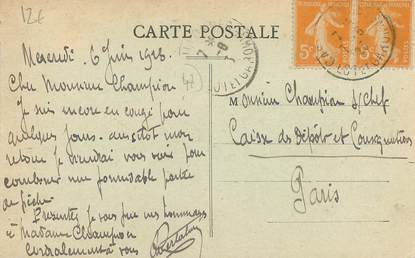 12€
CARTE POSTALE
Mercredi 6 Juin 1928.
Cher Monsieur Champion
Je suis encore en congé pour
quelques jours - aussitôt mon
retour je viendrai vous voir pour
combiner une formidable partie
de pêche.
Présentez je vous prie mes hommages
à Madame Champion
Cordialement à vous
47
Monsieur Champion S/chef
Caisse de Dépôts et Consignations
Paris
5c
5c